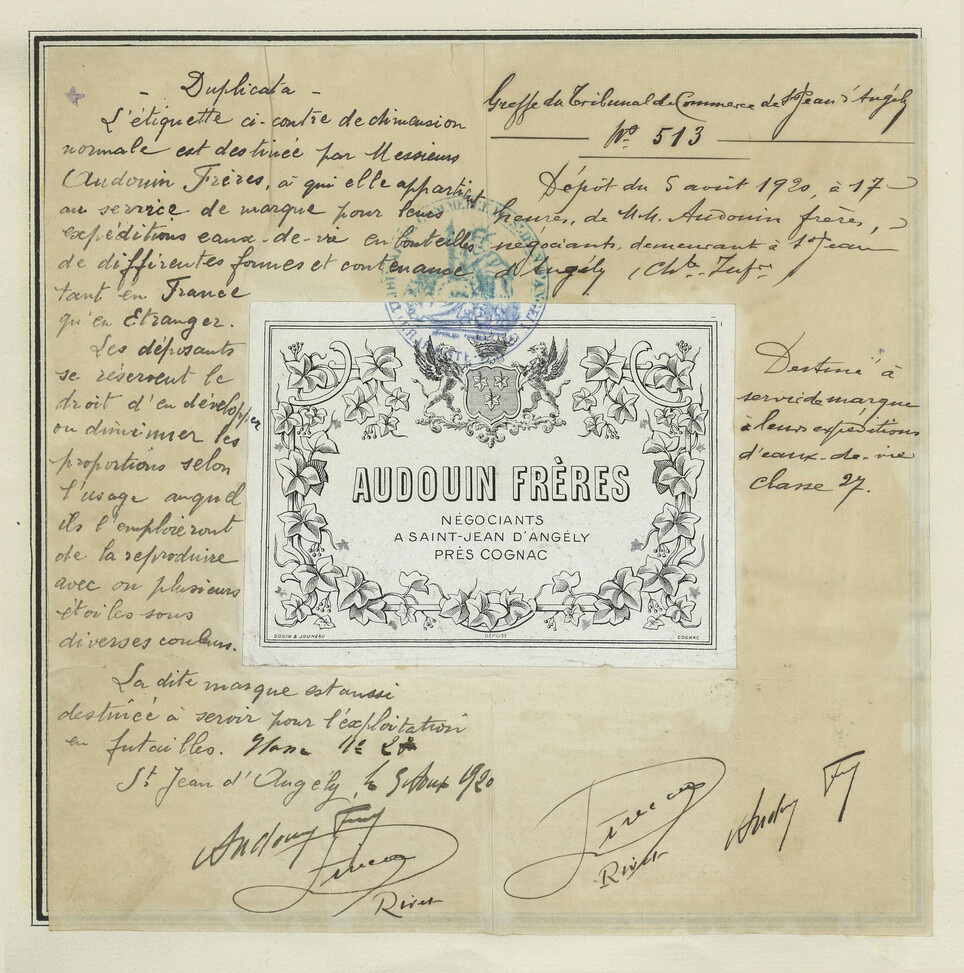 - Duplicata -
L'étiquette ci-contre de dimension
normale est destinée par Messieurs
Audouin Frères, à qui elle appartient
au service de marque pour leurs
expéditions eaux-de-vie en bouteilles
de différentes formes et contenance
tant en France
qu'en Etranger.
Les déposants
se réservent le
droit d'en développer
ou diminuer les
proportions selon
l'usage auquel
ils l'emploieront
de la reproduire
avec ou plusieurs
étoiles sous
diverses couleurs.
La dite marque est aussi
destinée à servir pour l'exploitation
en futailles.
St Jean d'Angély, le 5 Août 1920
Audouin
Rivet
Greffe du Tribunal de Commerce de St Jean d'Angély
No 513
Dépôt du 5 août 1920, à 17
heures, de M.M. Audouin frères,
négociants, demeurant à St Jean
d'Angély (Chte Infre)
AUDOUIN FRÈRES
NÉGOCIANTS
A SAINT-JEAN D'ANGÉLY
PRÈS COGNAC
DOUIN & JOUNEAU
DÉPOSÉ
COGNAC
Destiné à
service de marque
à leurs expéditions
d'eaux-de-vie
classe 27.
Rivet